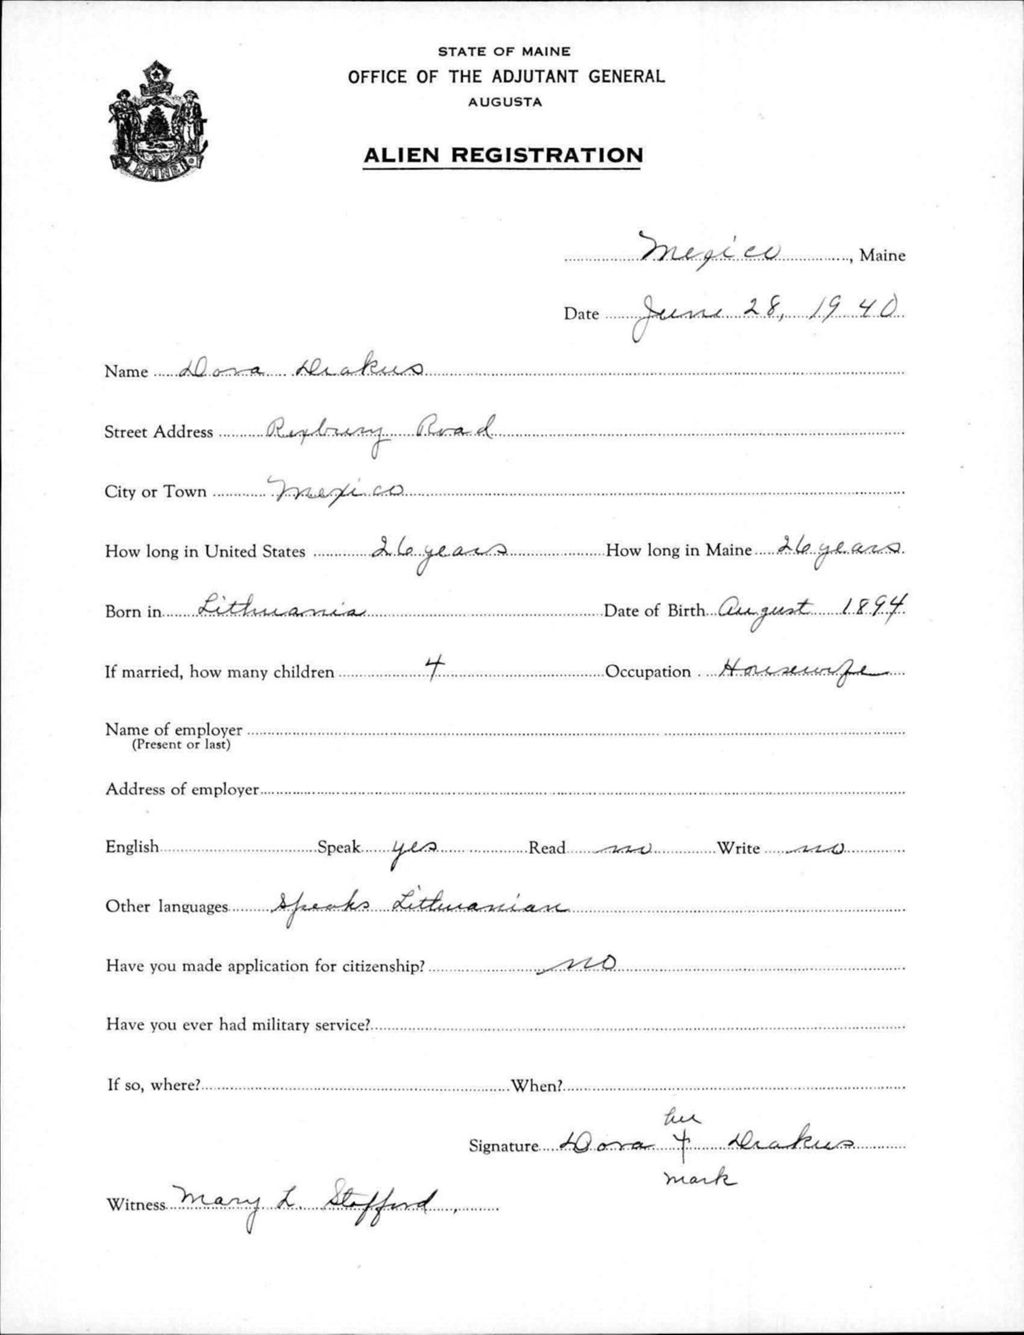 STATE OF MAINE
OFFICE OF THE ADJUTANT GENERAL
AUGUSTA
ALIEN REGISTRATION
MAINE
Mexico, Maine
Date June 28, 1940
Name Dora Drakus
Street Address Roxbury Road
City or Town Mexico
How long in United States 26 years How long in Maine 26 years
Born in Lithuania Date of Birth August 1894
If married, how many children 4 Occupation Housewife
Name of employer
(Present or last)
Address of employer
English Speak yes Read no Write no
Other languages Speaks Lithuanian
Have you made application for citizenship? no
Have you ever had military service?
If so, where? When?
her
Signature Dora + Drakus
mark
Witness Mary L. Stafford